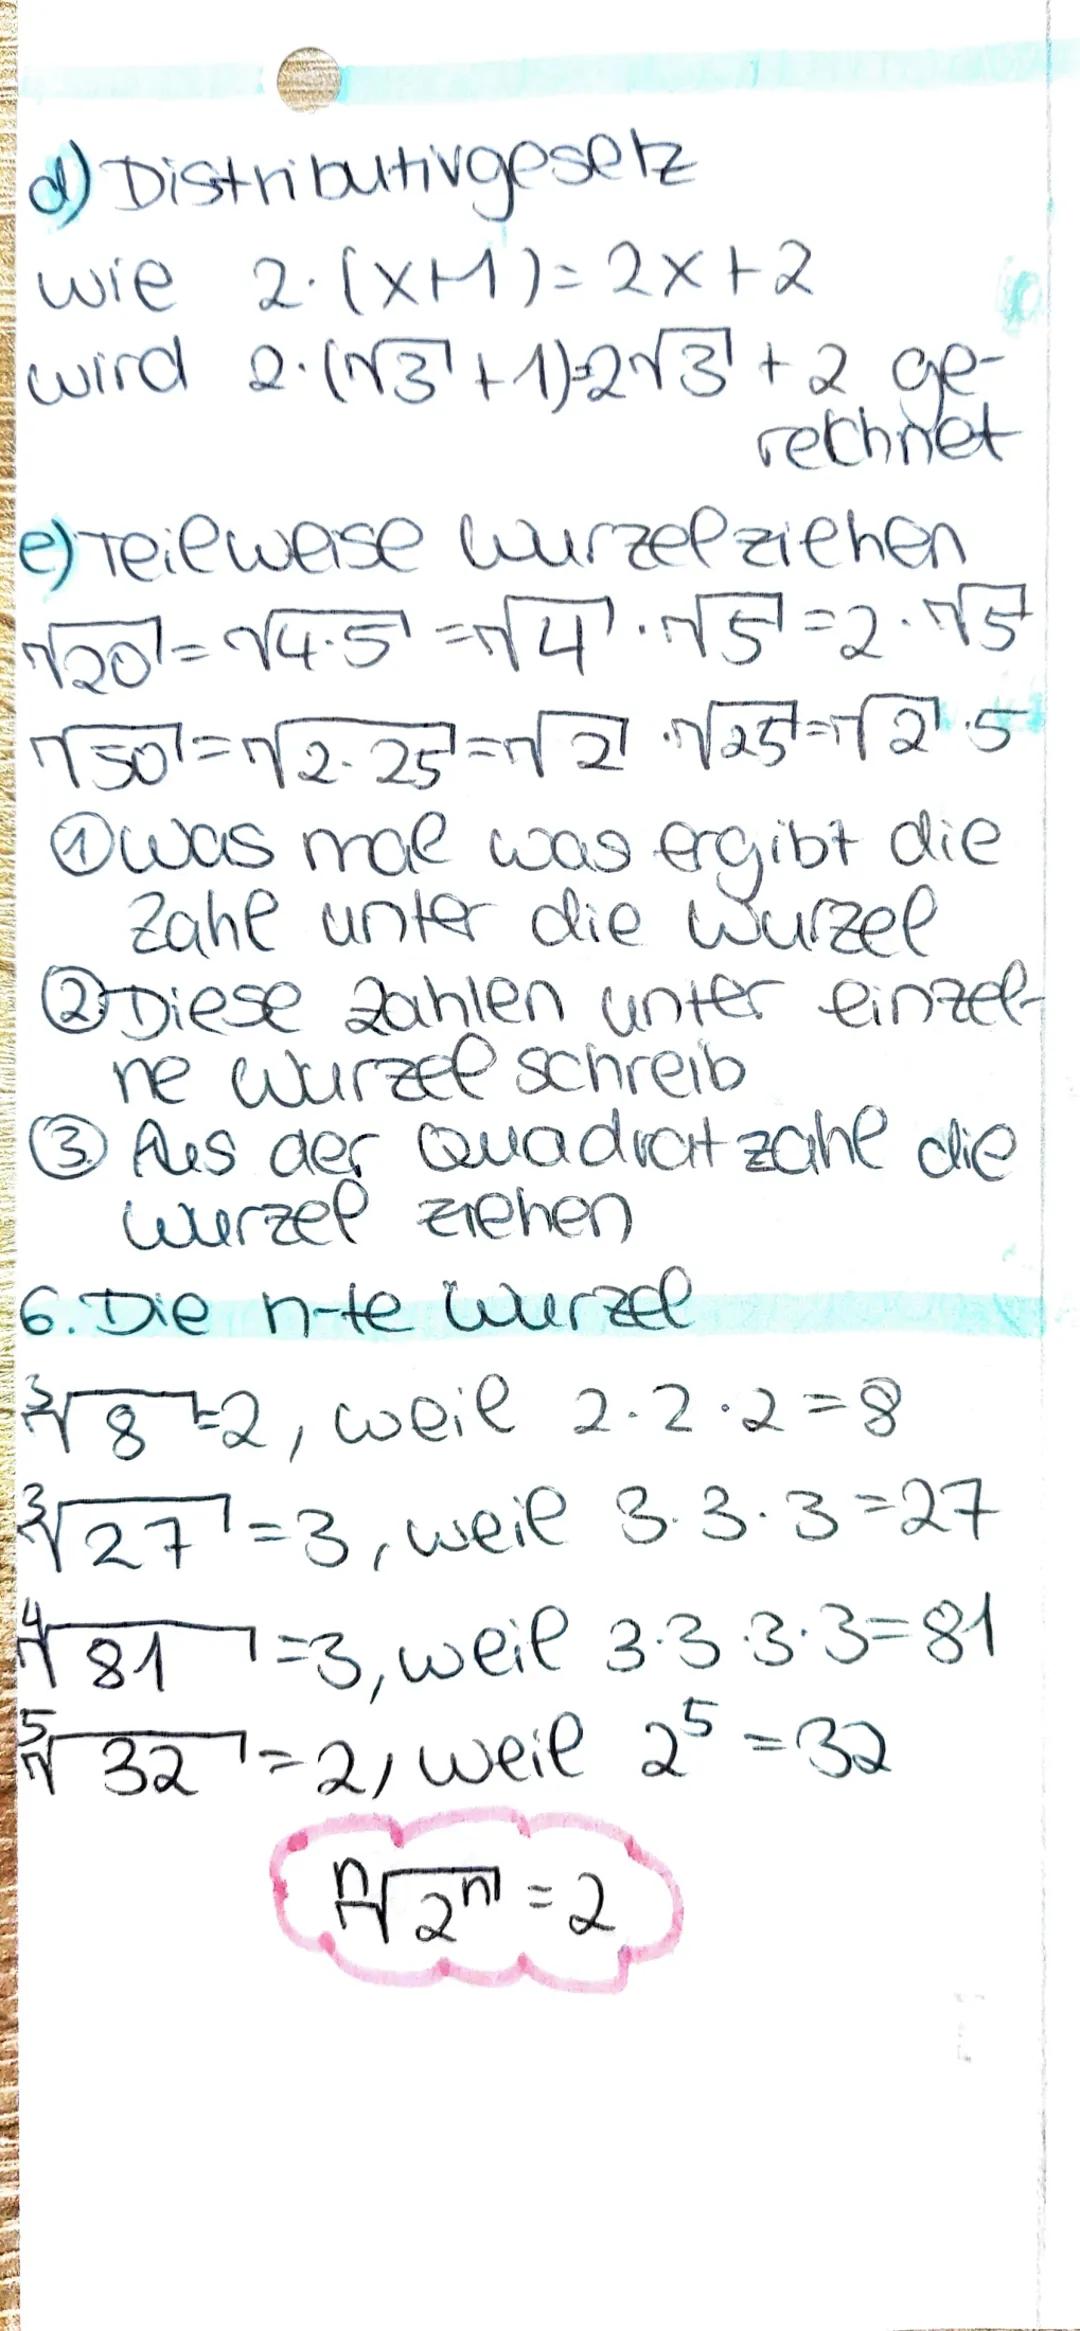 d) Distributivgesetz
wie 2·(x+1)=2x+2
wird 2·(√3+1)=2√3+2 ge-
rechnet
e) Teilweise Wurzelziehen
√20=√4·5=√4·√5=2·√5
√50=√2·25=√2·√25=√2·5
① Was mal was ergibt die
Zahl unter die Wurzel
② Diese Zahlen unter einzel-
ne Wurzel schreib
③ Aus der Quadratzahl die
Wurzel ziehen
6. Die n-te Wurzel
³√8=2, weil 2·2·2=8
³√27=3, weil 3·3·3=27
⁴√81=3, weil 3·3·3·3=81
⁵√32=2, weil 2⁵=32
ⁿ√2ⁿ=2